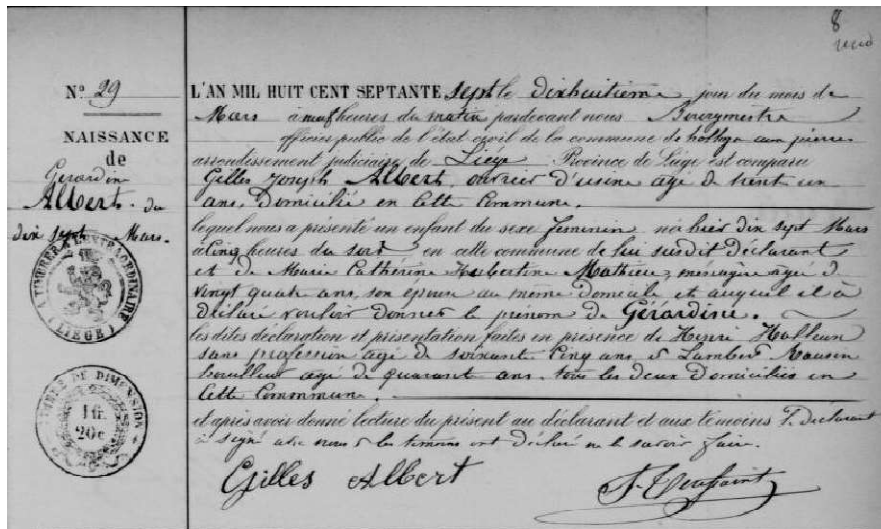 8
Nº 29
NAISSANCE
de
Gérardine
Albert du
dix sept Mars.
TIMBRE ADJOINT EXTRAORDINAIRE
( LIEGE )
TIMBRE DE DIMENSION
1 fr.
20 c
L'AN MIL HUIT CENT SEPTANTE sept le dixhuitième jour du mois de
Mars à neuf heures du matin pardevant nous Bourgmestre
officier public de l'état civil de la commune de hollogne aux pierres
arrondissement judiciaire de Liége Province de Liége est comparu
Gilles Joseph Albert, ouvrier d'usine agé de trent un
ans, Domicilié en Cette Commune.
lequel nous a présenté un enfant du sexe feminin né hier dix sept Mars
à Cinq heures du soir en cette commune de lui susdit déclarant
et de Marie Cathérine Hubertine Mathieu, ménagère agée d
vingt quatre ans, son épouse au même domicile et auquel il à
déclaré vouloir donner le prénom de Gérardine.
les dites déclaration et présentation faites en présence de Henri Halleux
sans profession agé de soixante Cinq ans & Lambert
houilleur agé de quarant ans tous les deux Domiciliés en
Cette Commune.
et après avoir donné lecture du présent au déclarant et aux témoins Le Déclarant
à signé avec nous & les témoins ont déclaré ne le savoir faire.
Gilles Albert
Toussaint